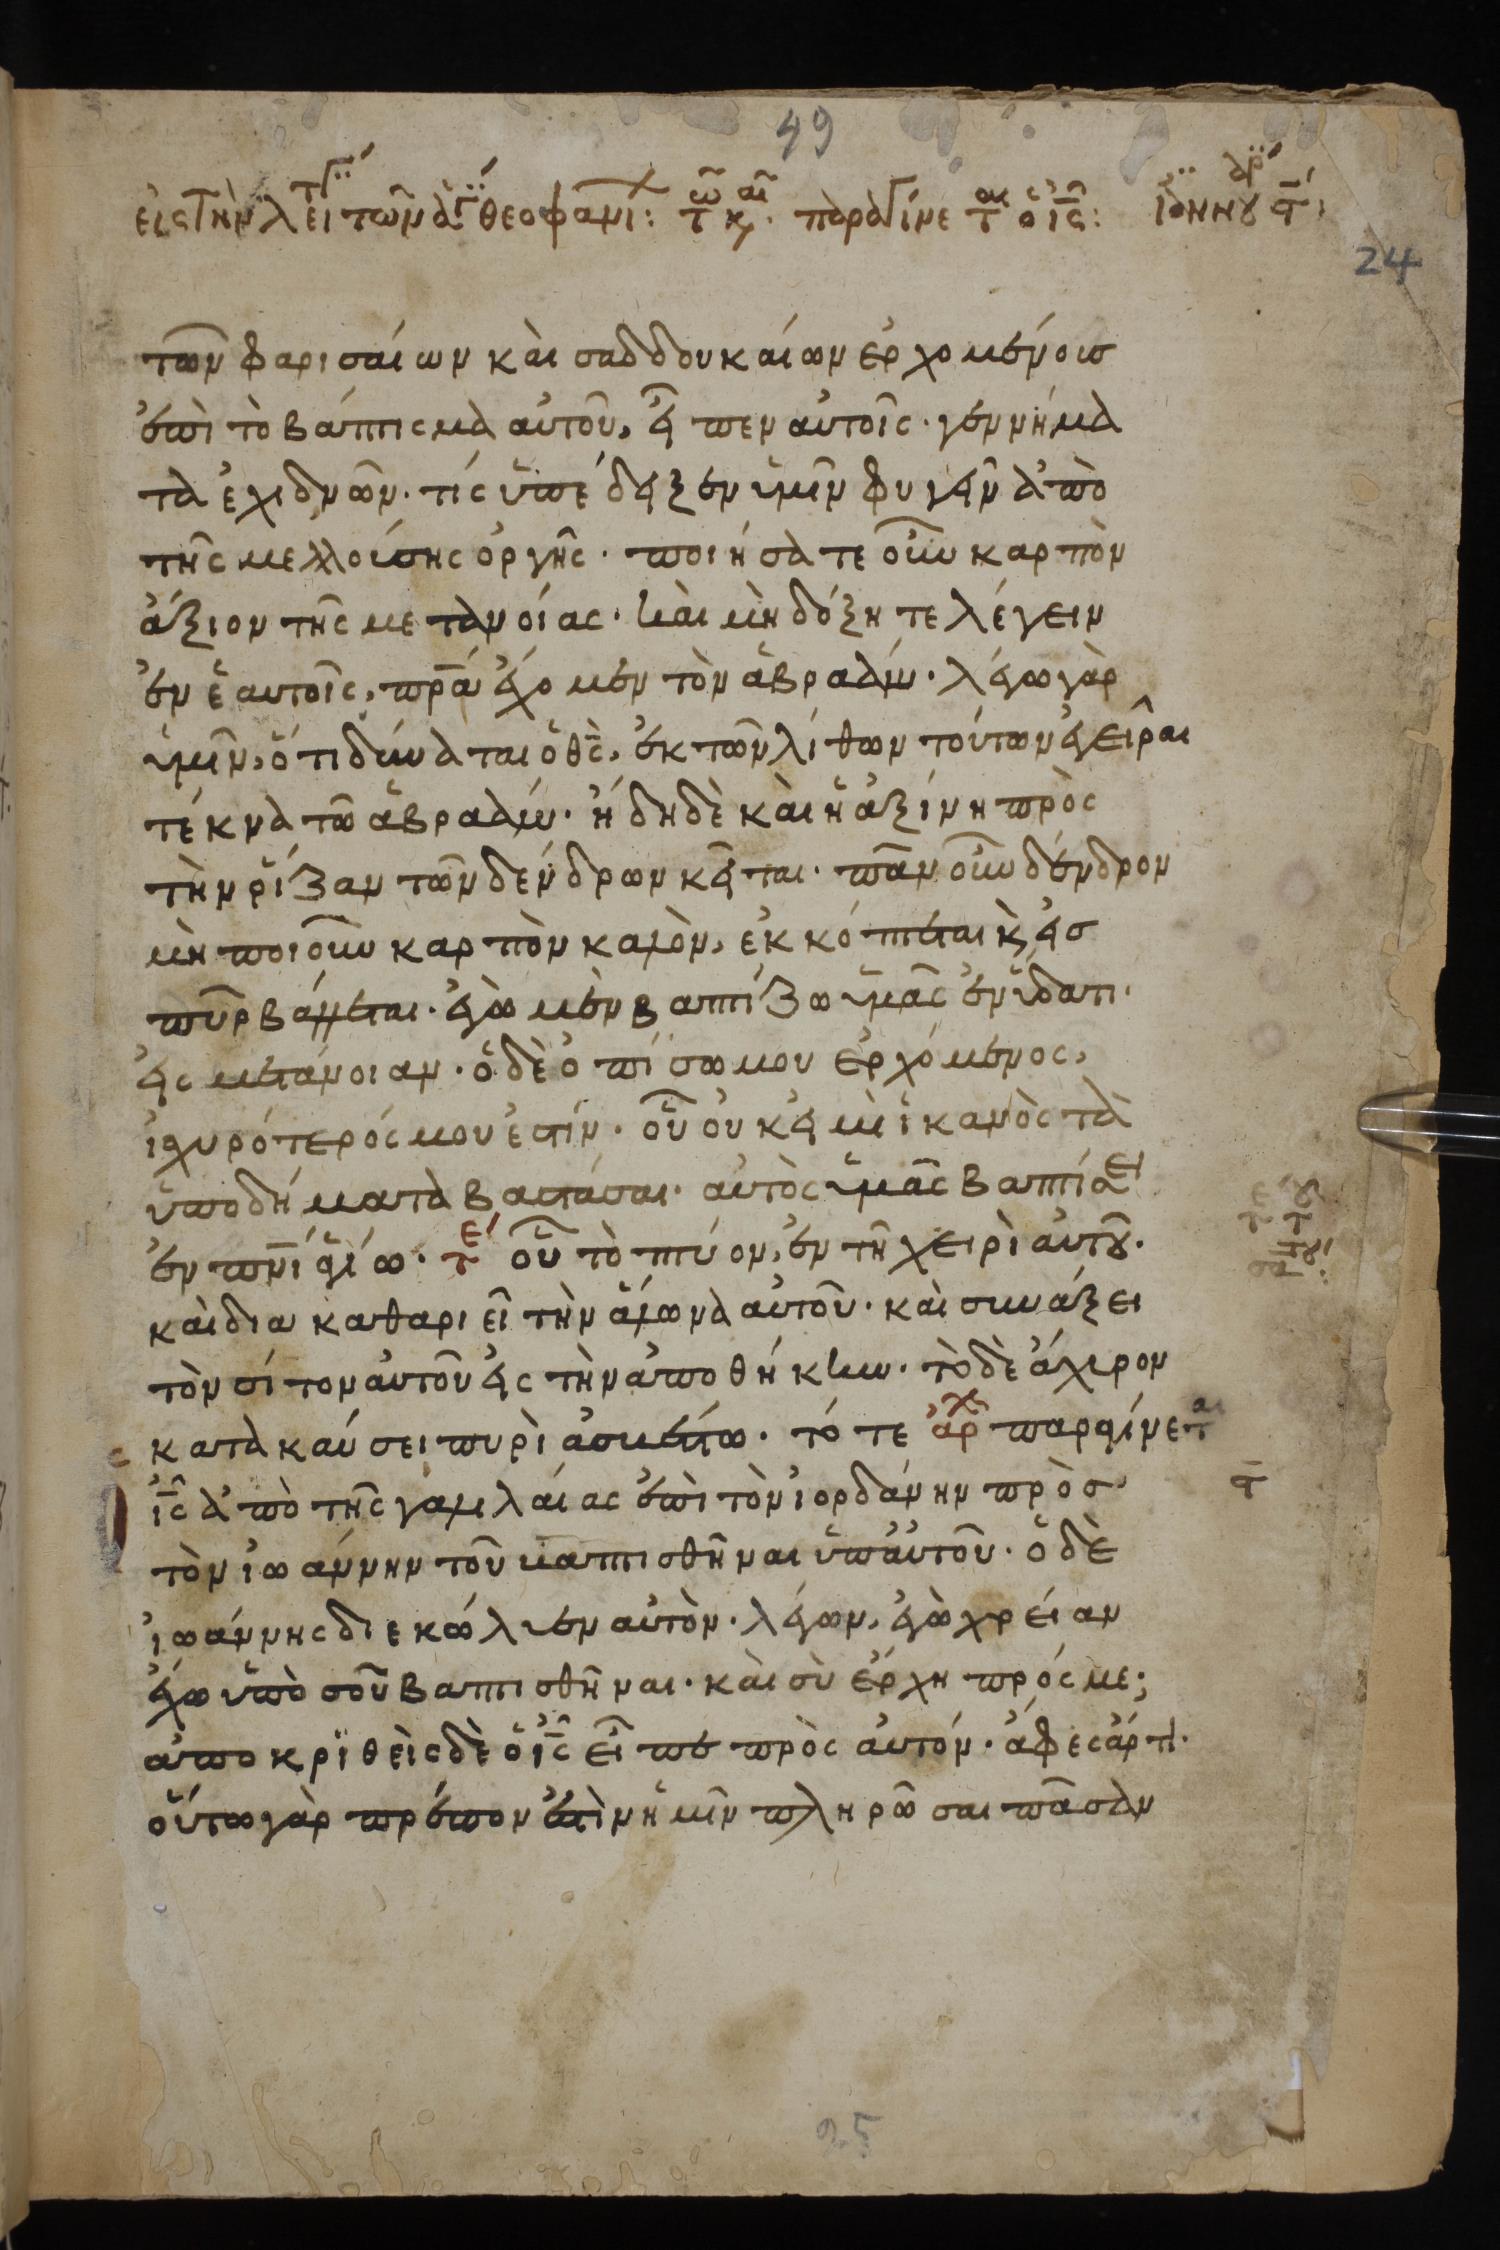 49
εἰς τὴν λει τῶν ἁγ θεοφανι: τω και. παραγίνεται ὁ ις:
24
τῶν φαρισαίων καὶ σαδδουκαίων ἐρχομένουσ
ἐπὶ τὸ βάπτισμα αὐτοῦ, εἶπεν αὐτοῖς· γεννήμα
τα ἐχιδνῶν· τίς ὑπέδειξεν ὑμῖν φυγεῖν ἀπὸ
τῆς μελλούσης ὀργῆς· ποιήσατε οὖν καρπὸν
ἄξιον τῆς μετανοίας· καὶ μὴ δόξητε λέγειν
ἐν ἑαυτοῖς, πρα ἔχομεν τὸν ἀβραάμ· λέγω γὰρ
ὑμῖν, ὅτι δύναται ὁ θς, ἐκ τῶν λίθων τούτων ἐγεῖραι
τέκνα τῶ ἀβραάμ· ἤδη δὲ καὶ ἡ ἀξίνη πρὸς
τὴν ῥίζαν τῶν δένδρων κεῖται· πᾶν οὖν δένδρον
μὴ ποιοῦν καρπὸν καλὸν, ἐκκόπτεται κ εἰσ
πῦρ βάλλεται· ἐγὼ μὲν βαπτίζω ὑμᾶς ἐν ὕδατι·
εἰς μετάνοιαν· ὁ δὲ ὀπίσω μου ἐρχόμενος,
ἰσχυρότερός μου ἐστίν· οὗ οὐκ εἰμὶ ἱκανὸς τὰ
ὑποδήματα βαστάσαι· αὐτὸς ὑμᾶς βαπτίσει
ἐν πνι ἁγίω· τε οὗ τὸ πτύον, ἐν τῆ χειρὶ αὐτοῦ·
καὶ διακαθαριεῖ τὴν ἅλωνα αὐτοῦ· καὶ συνάξει
τὸν σίτον αὐτοῦ εἰς τὴν ἀποθήκην· τὸ δὲ ἄχυρον
κατακαύσει πυρὶ ἀσβέστω· τότε ἀρχ παραγίνεται
ις ἀπὸ τῆς γαλιλαίας ἐπὶ τὸν ἰορδάνην πρὸσ
τὸν ἰωάννην τοῦ βαπτισθῆναι ὑπ' αὐτοῦ· ὁ δὲ
ἰωάννης διεκώλυεν αὐτὸν· λέγων, ἐγὼ χρείαν
ἔχω ὑπὸ σοῦ βαπτισθῆναι· καὶ σὺ ἔρχη πρός με;
ἀποκριθεὶς δὲ ὁ ις εἶπε πρὸς αὐτόν· ἄφες ἄρτι·
οὕτω γὰρ πρέπον ἐστὶν ἡμῖν πληρῶσαι πᾶσαν
25